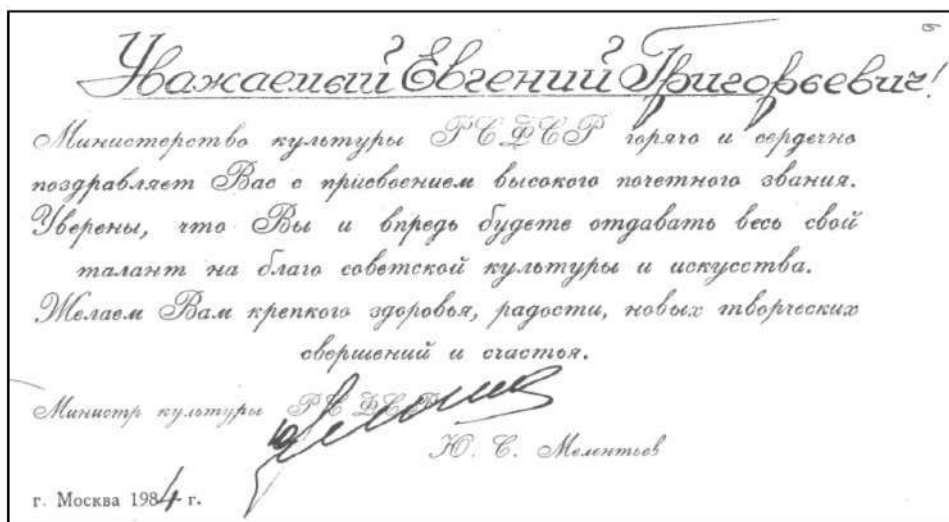 Уважаемый Евгений Григорьевич!
Министерство культуры РСФСР горячо и сердечно
поздравляет Вас с присвоением высокого почетного звания.
Уверены, что Вы и впредь будете отдавать весь свой
талант на благо советской культуры и искусства.
Желаем Вам крепкого здоровья, радости, новых творческих
свершений и счастья.
Министр культуры РСФСР
Ю. С. Мелентьев
г. Москва 1984 г.